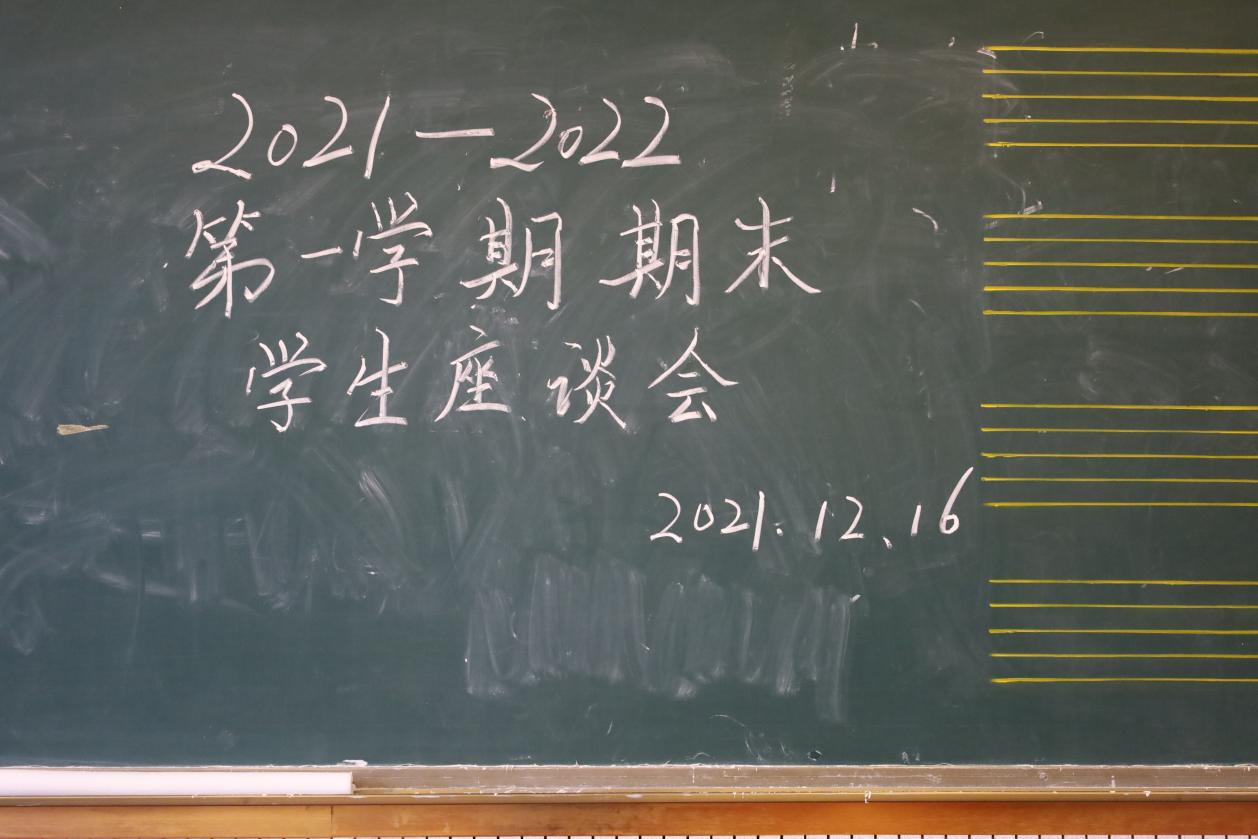 2021—2022
第一学期期末
学生座谈会
2021.12、16